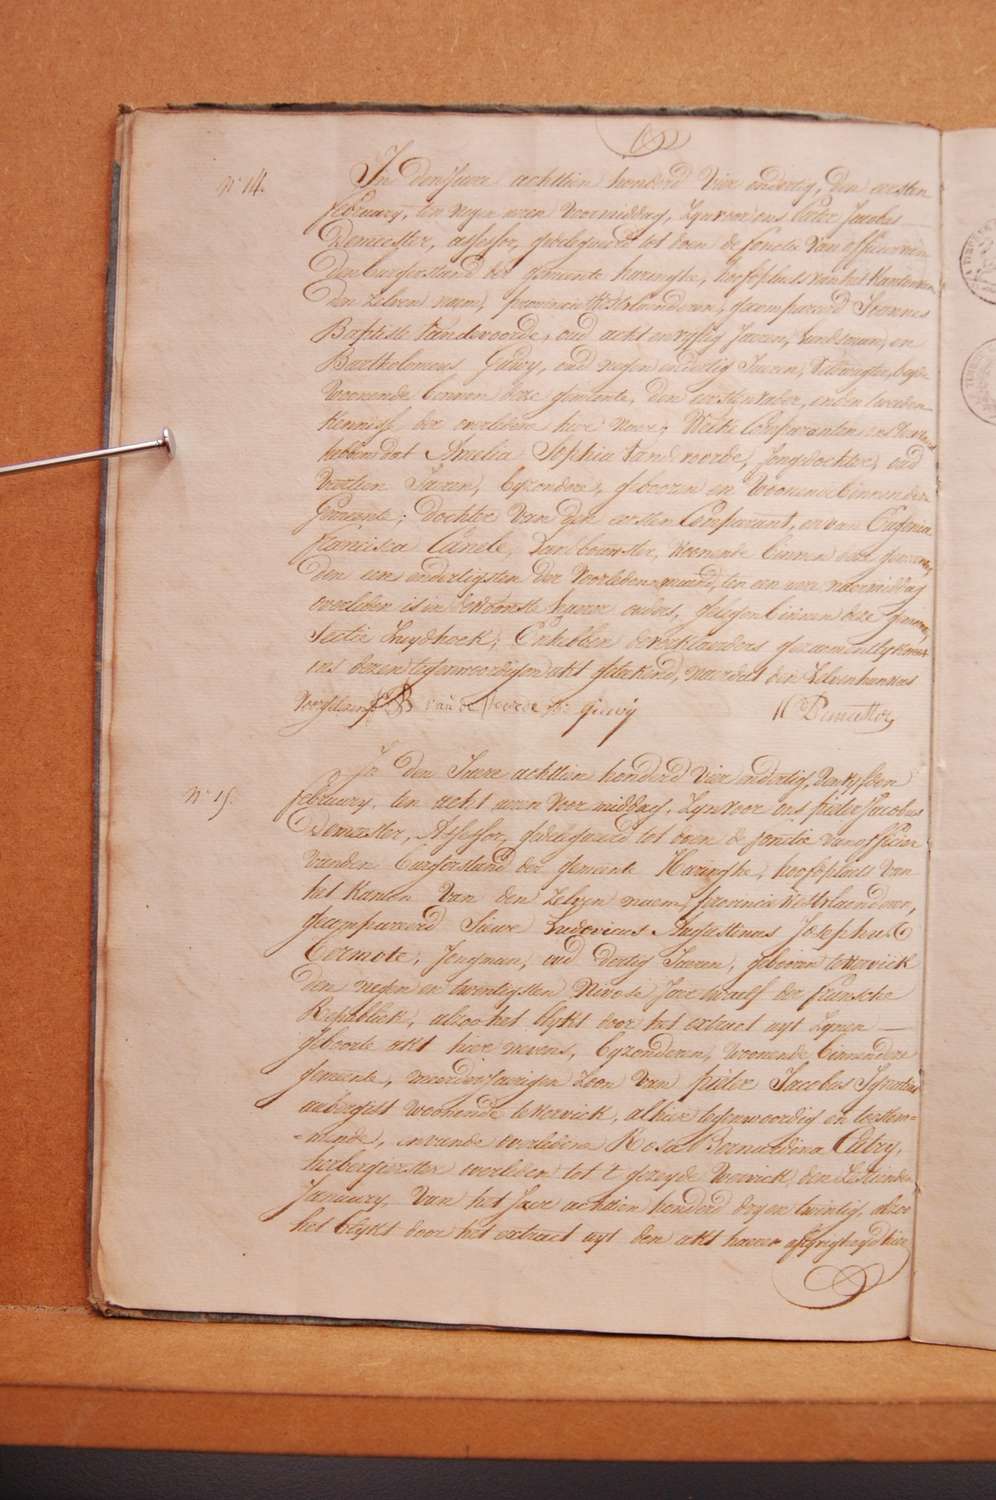 N° 14. In den Jaere achttien honderd vier endertig, den eersten
february, ten negen uren voormiddag, zyn voor ons Pieter Jacobus
Demeester, assessor, gedelegueerd tot doen de fonctie van officier van
den burgerstand der gemeente haringhe, hoofdplaets van het Kanton van
den zelven naem, provincie Westvlaenderen, gecompareerd Joannes
Baptiste Vandevoorde, oud acht en vyftig Jaeren, landsman, en
Bartholomeus Gheivy, oud negen en dertig Jaeren, beyde
woonende binnen deze gemeente, den eersten vader, en den tweeden
kennisse der overledene hier naer; Welke Comparanten ons verklaert
hebben dat Amelia Sophia Vandevoorde, Jongedochter, oud
Jaeren, byzondere, gebooren en woonende binnen deze
Gemeente; dochter van den eersten Comparant, en van Eugenia
Francisca Canele, Landbouwster, woonende binnen deze gemeente,
den een endertigsten der voorledene maend, ten een ure naermiddag
overleden is in de woonste haerer ouders, gelegen binnen deze gemeente,
sectie Zuydhoek; En hebben de verklaerders gezaementlyk met
ons dezen tegenwoordigen akt geteekend, naer dat hun zelven hun was
voorgelezen JB van de voorde gheivy PJ Demeester
N° 15. In den Jaere achttien honderd vier endertig, den vyfden
february, ten acht uren voormiddag, zyn voor ons pieter Jacobus
Demeester, Assessor, gedelegueerd tot doen de fonctie van officier
van den burgerstand der gemeente Haringhe, hoofdplaets van
het Kanton van den zelven naem, provincie Westvlaenderen,
gecompareerd Sieur Ludovicus Augustinus Josephus
Cormote, Jongman, oud dertig Jaeren, gebooren te Werwick
den negen en twintigsten Nivose Jare twaelf der fransche
Republick, alsoo het blykt door het extract uyt zynen
geboorte akt hier nevens, byzonderen, woonende binnen deze
gemeente, meerderjaerigen zoon van pieter Jacobus Ignatius
aubergist woonende te Werwick, alhier tegenwoordig en toestem-
-mende, en van de overledene Rosa Bernardina Catry,
herbergierster overleden tot 't gezeyde Werwick den zestienden
January van het Jaer achttien honderd dry en twintig, alsoo
het blykt door het extract uyt den akt haerer afstervigheyd hier